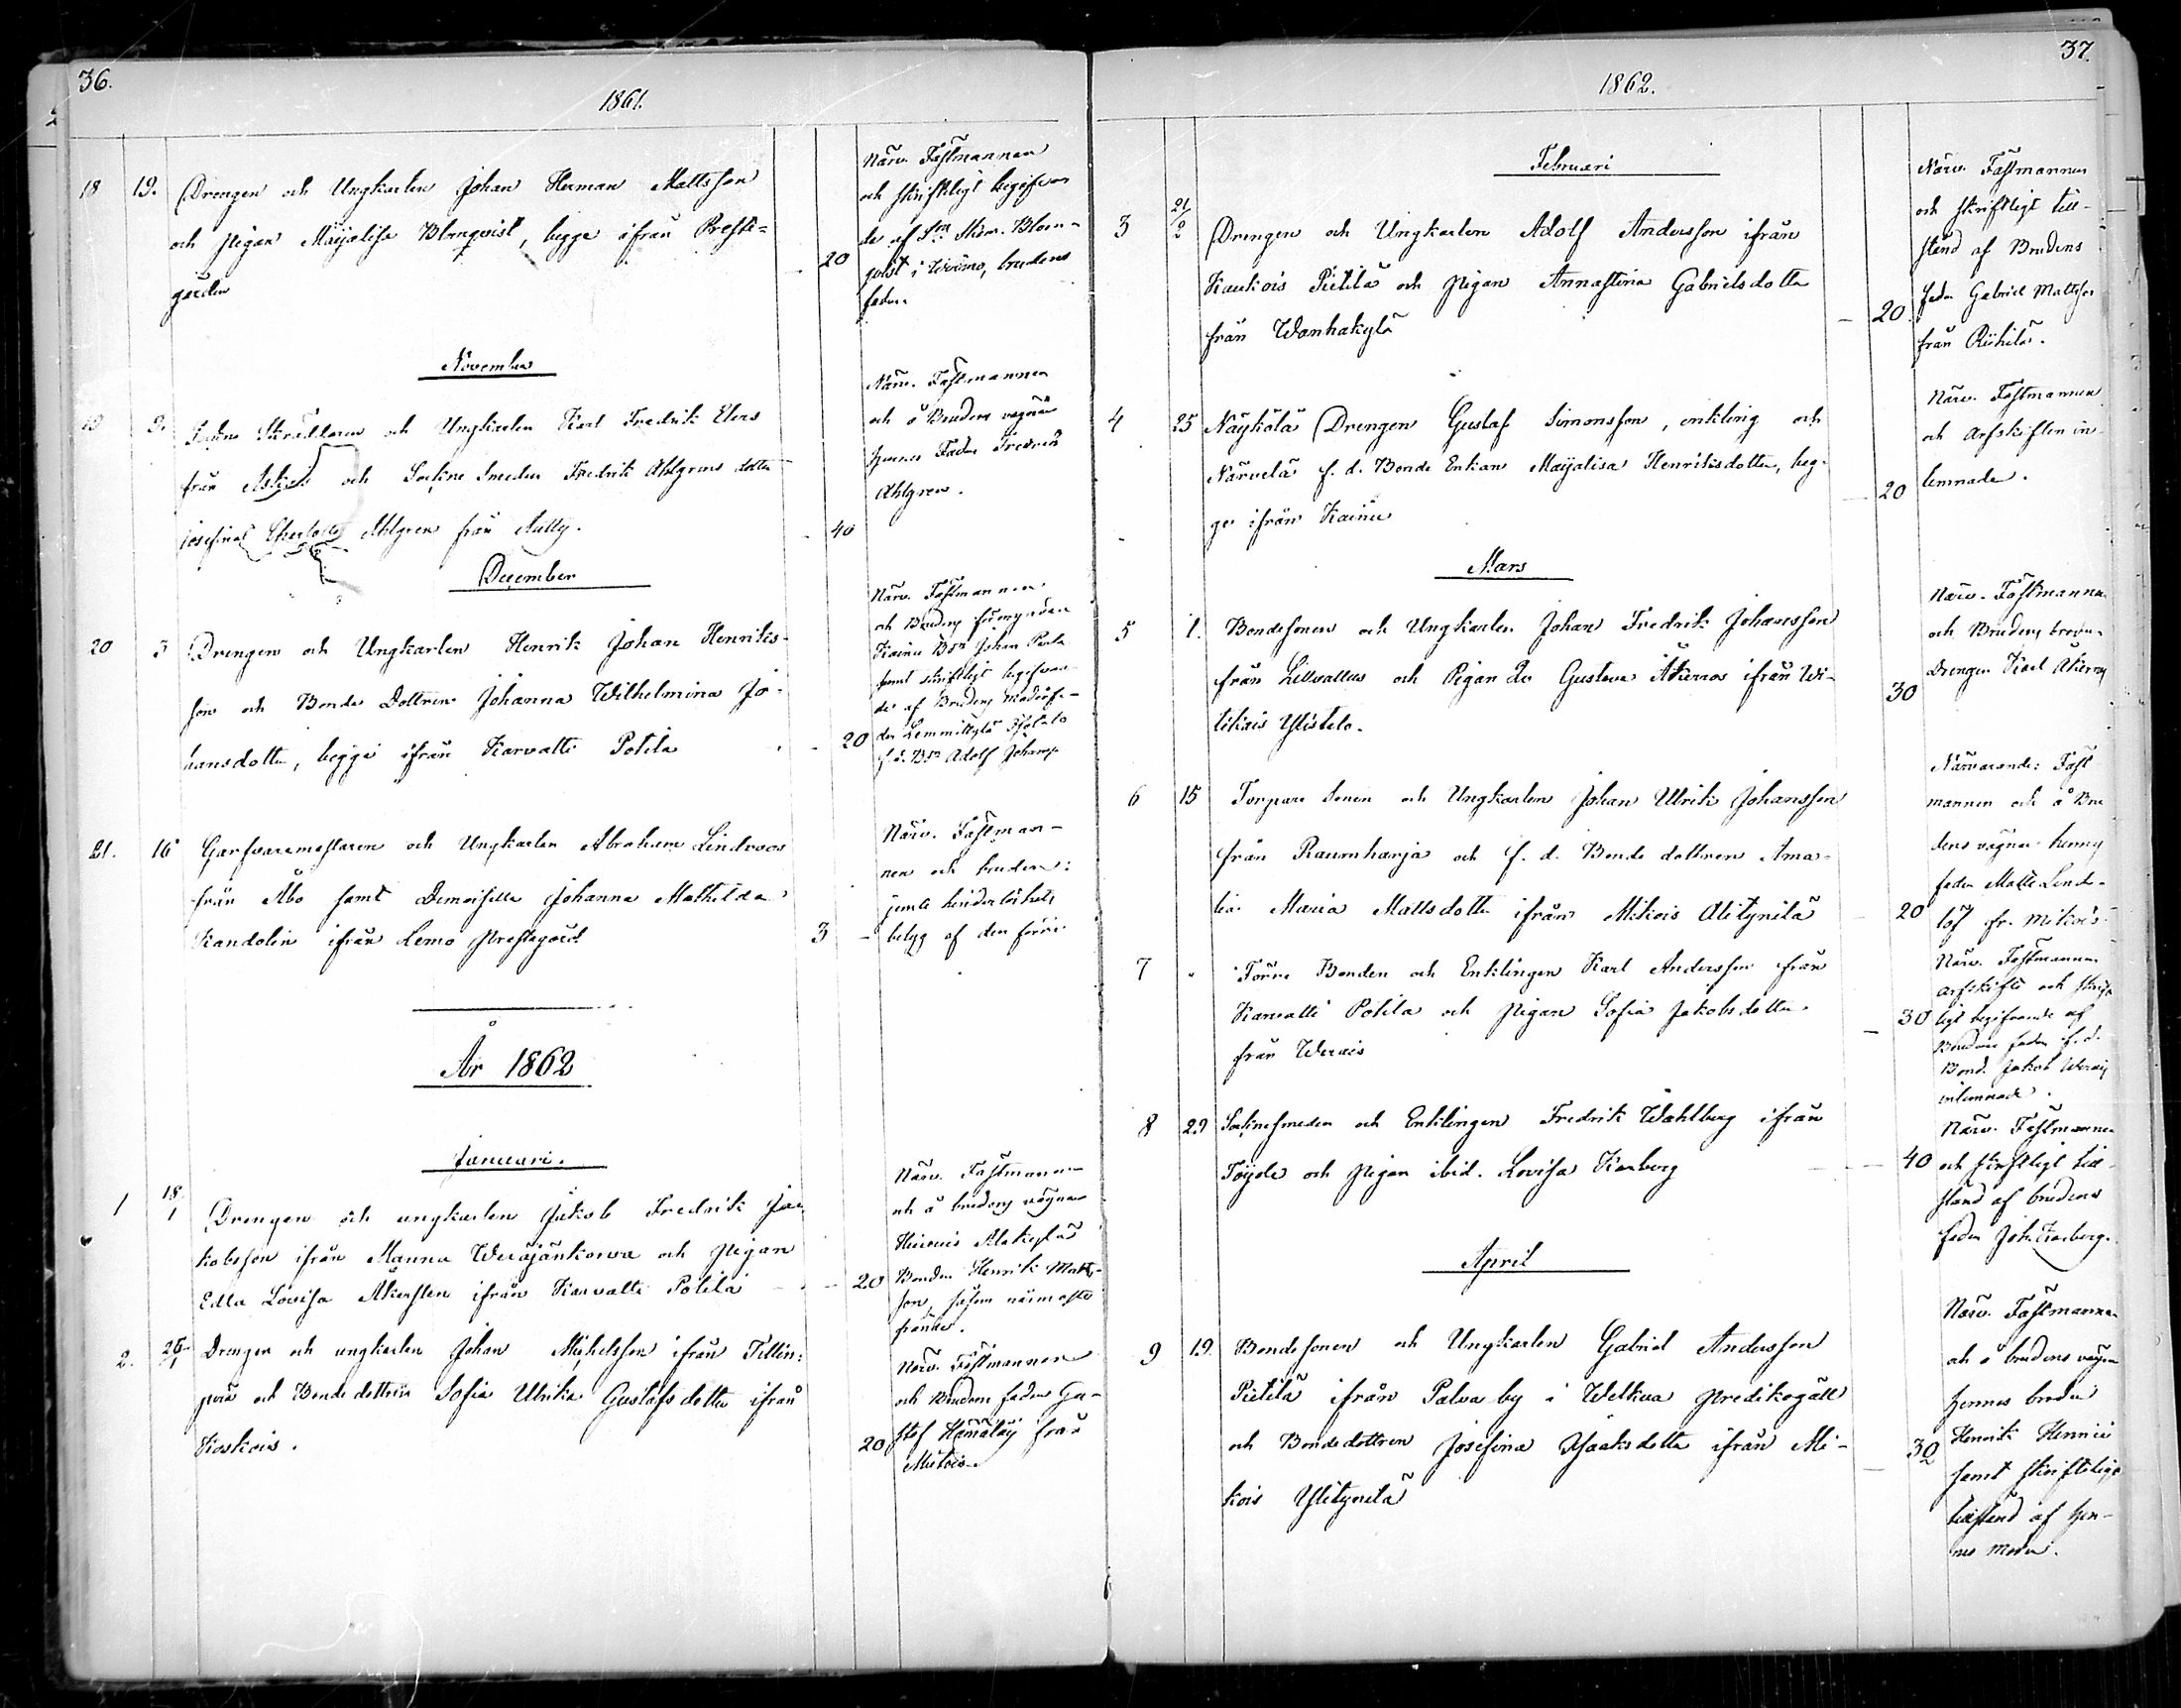 36.
1861.
18 19. Drengen och Ungkarlen Johan Herman Mattsson
och Pigan Maijalisa Blomqvist, begge ifrån Preste-
gården
20
Närv. Fästmannen
och skriftligt begifvan
de af Sim. Blom-
qvist i Wirmo, brudens
fader.
November
19 9. Skräddaren och Ungkarlen Karl Fredrik Elers
från Askais och Sockne Smeden Fredrik Ahlgrens dotter
Josefina Charlotta Ahlgren från Nutty.
40
Närv. Fästmannen
och å Brudens vägnar
hennes Fader Fredrik
Ahlgren.
December
20 3 Drengen och Ungkarlen Henrik Johan Henriks-
son och Bonde Dottren Johanna Wilhelmina Jo-
hansdotter, begge ifrån Karvatti Potila
20
Närv. Fästmannen
och Brudens förmyndare
Kainu Bdn Johan
samt skriftligt begifvan-
de af Brudens
der Lemmikylä
f.d. Bdn Adolf Johanss.
21. 16 Garfvaremästaren och Ungkarlen Abraham Lindroos
från Åbo samt Demoiselle Johanna Mathilda
Kandolin ifrån Lemo Prestegård
3 -
Närv. Fästman-
nen och bruden:
jemte hinderlöshets
belyg af den förre.
År 1862
Januari.
1 18/1 Drengen och ungkarlen Jakob Fredrik Ja-
kobsson ifrån Manna Weräjänkorva och Pigan
Edla Lovisa Åkersten ifrån Karvatti Potila
20
Närv. Fästmannen
och å brudens vägnar
Alakylä
Bonden Henrik Matts-
son, såsom närmaste
frände.
2. 26/1 Drengen och ungkarlen Johan Michelsson ifrån Tillin-
och Bonde dottren Sofia Ulrika Gustafsdotter ifrån
Koskois.
20
Närv. Fästmannen
och Brudens fader Gu-
staf från
37.
1862.
Februari
3 21/2 Drengen och Ungkarlen Adolf Andersson ifrån
Kaukois Pietilä och Pigan Annastina Gabrielsdotter
från Wanhakylä
20.
Närv. Fästmannen
och skriftligt till-
stånd af Brudens
fader Gabriel Mattsson
från Riihilä.
4 25 Näykölä Drengen Gustaf Simonsson, enkling och
Närvelä f. d. Bonde Enkan Maijalisa Henriksdotter, beg-
ge ifrån Kainu
20
Närv. Fästmannen
och arfskiften in
lemnade.
Mars
5 1. Bondesonen och Ungkarlen Johan Fredrik Johansson
från Lillvallis och Pigan Gustava Åkerros ifrån Wi-
tikais Ylistelo.
30
Närv. Fästmannen
och Brudens broder
Drengen Karl Åkerros
6 15 Torpare Sonen och Ungkarlen Johan Ulrik Johansson
från Raumharja och f. d. Bonde dottren Ama-
lia Maria Mattsdotter ifrån Mikois Alitynilä
20
Närvarande: Fäst
mannen och å Bru
dens vägnar hennes
fader Matts Lind-
löf fr. Mikois.
7 " Förre Bonden och Enklingen Karl Andersson från
Karvatti Potila och Pigan Sofia Jakobsdotter
från Werais
30
Närv. Fästmannen
arfskifte och skrift
ligt begifvande af
Brudens fader f.d.
Bond. Jakob Werais
inlemnade.
8 29 Socknesmeden och Enklingen Fredrik Wahlberg ifrån
Töyde och Pigan ibid. Lovisa Karberg
40
Närv. Fästmannen
och skriftligt till-
stånd af brudens
fader Joh. Karberg.
April
9 19. Bondesonen och Ungkarlen Gabriel Andersson
Pietilä ifrån Palva by i Welkua Predikogäll
och Bondedottren Josefina Isaaksdotter ifrån Mi-
kois Ylitynilä
30
Närv. Fästmannen
och å brudens vägn.
hennes broder
Henrik Henrici
samt skriftliga
tillstånd af hen-
nes moder.